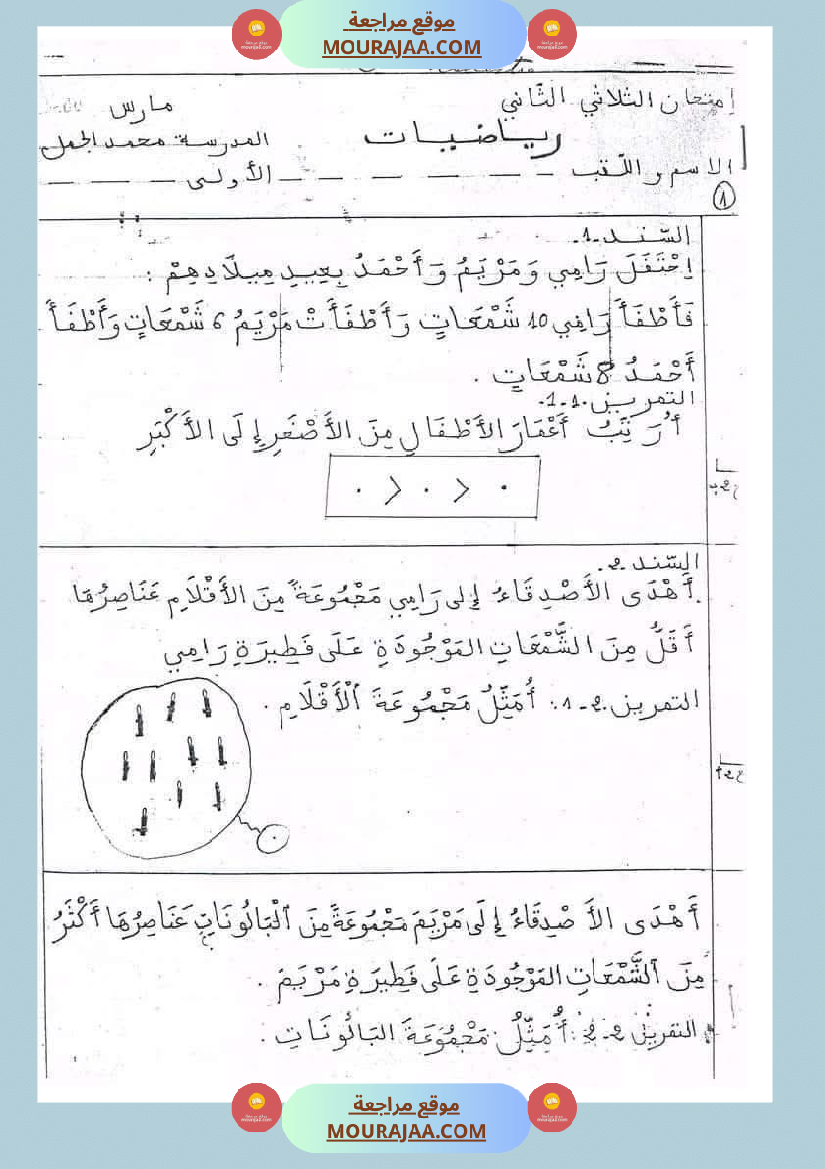 موقع مراجعة
MOURAJAA.COM
إمتحان الثلاثي الثّاني
مارس
رياضيات
المدرسة محمد الجمل
الاسم و اللّقب _ _ _ _ _ الأولى _ _ _
1
السّند.1.
اِحْتَفَلَ رَامِي وَمَرْيَمُ وَأَحْمَدُ بِعِيدِ مِيلَادِهِمْ :
فَأَطْفَأَ رَامِي 10 شَمْعَاتٍ وَأَطْفَأَتْ مَرْيَمُ 6 شَمْعَاتٍ وَأَطْفَأَ
أَحْمَدُ 8 شَمْعَاتٍ .
التمرين.1.1.
أُرَتِّبُ أَعْمَارَ الأَطْفَالِ مِنَ الأَصْغَرِ إِلَى الأَكْبَرِ
. > . > .
السّند.2.
أَهْدَى الأَصْدِقَاءُ إِلى رَامِي مَجْمُوعَةً مِنَ الأَقْلَامِ عَنَاصِرُهَا
أَقَلُّ مِنَ الشَّمْعَاتِ المَوْجُودَةِ عَلَى فَطِيرَةِ رَامِي
التمرين.2-1. أُمَثِّلُ مَجْمُوعَةَ اَلْأَقْلَامِ .
أَهْدَى الأَصْدِقَاءُ إِلَى مَرْيَمَ مَجْمُوعَةً مِنَ اَلْبَالُونَاتِ عَنَاصِرُهَا أَكْثَرُ
مِنَ اَلشَّمْعَاتِ المَوْجُودَةِ عَلَى فَطِيرَةِ مَرْيَمَ .
التمرين 2-2: أُمَثِّلُ مَجْمُوعَةَ البَالُونَاتِ .
موقع مراجعة
MOURAJAA.COM